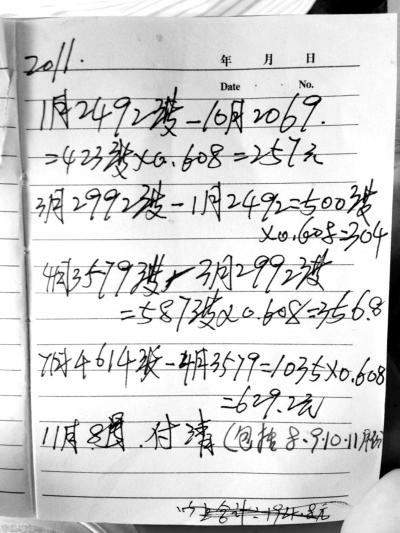 年 月 日
2011.
Date No.
1月2492度-10月2069.
=423度×0.608=257元
3月2992度-1月2492=500度
×0.608=304
4月3579度-3月2992度
=587度×0.608=356.8
7月4614度-4月3579=1035×0.608
=629.2元
11月8号.付清(包括8.9.10.11月份)
以上合计=